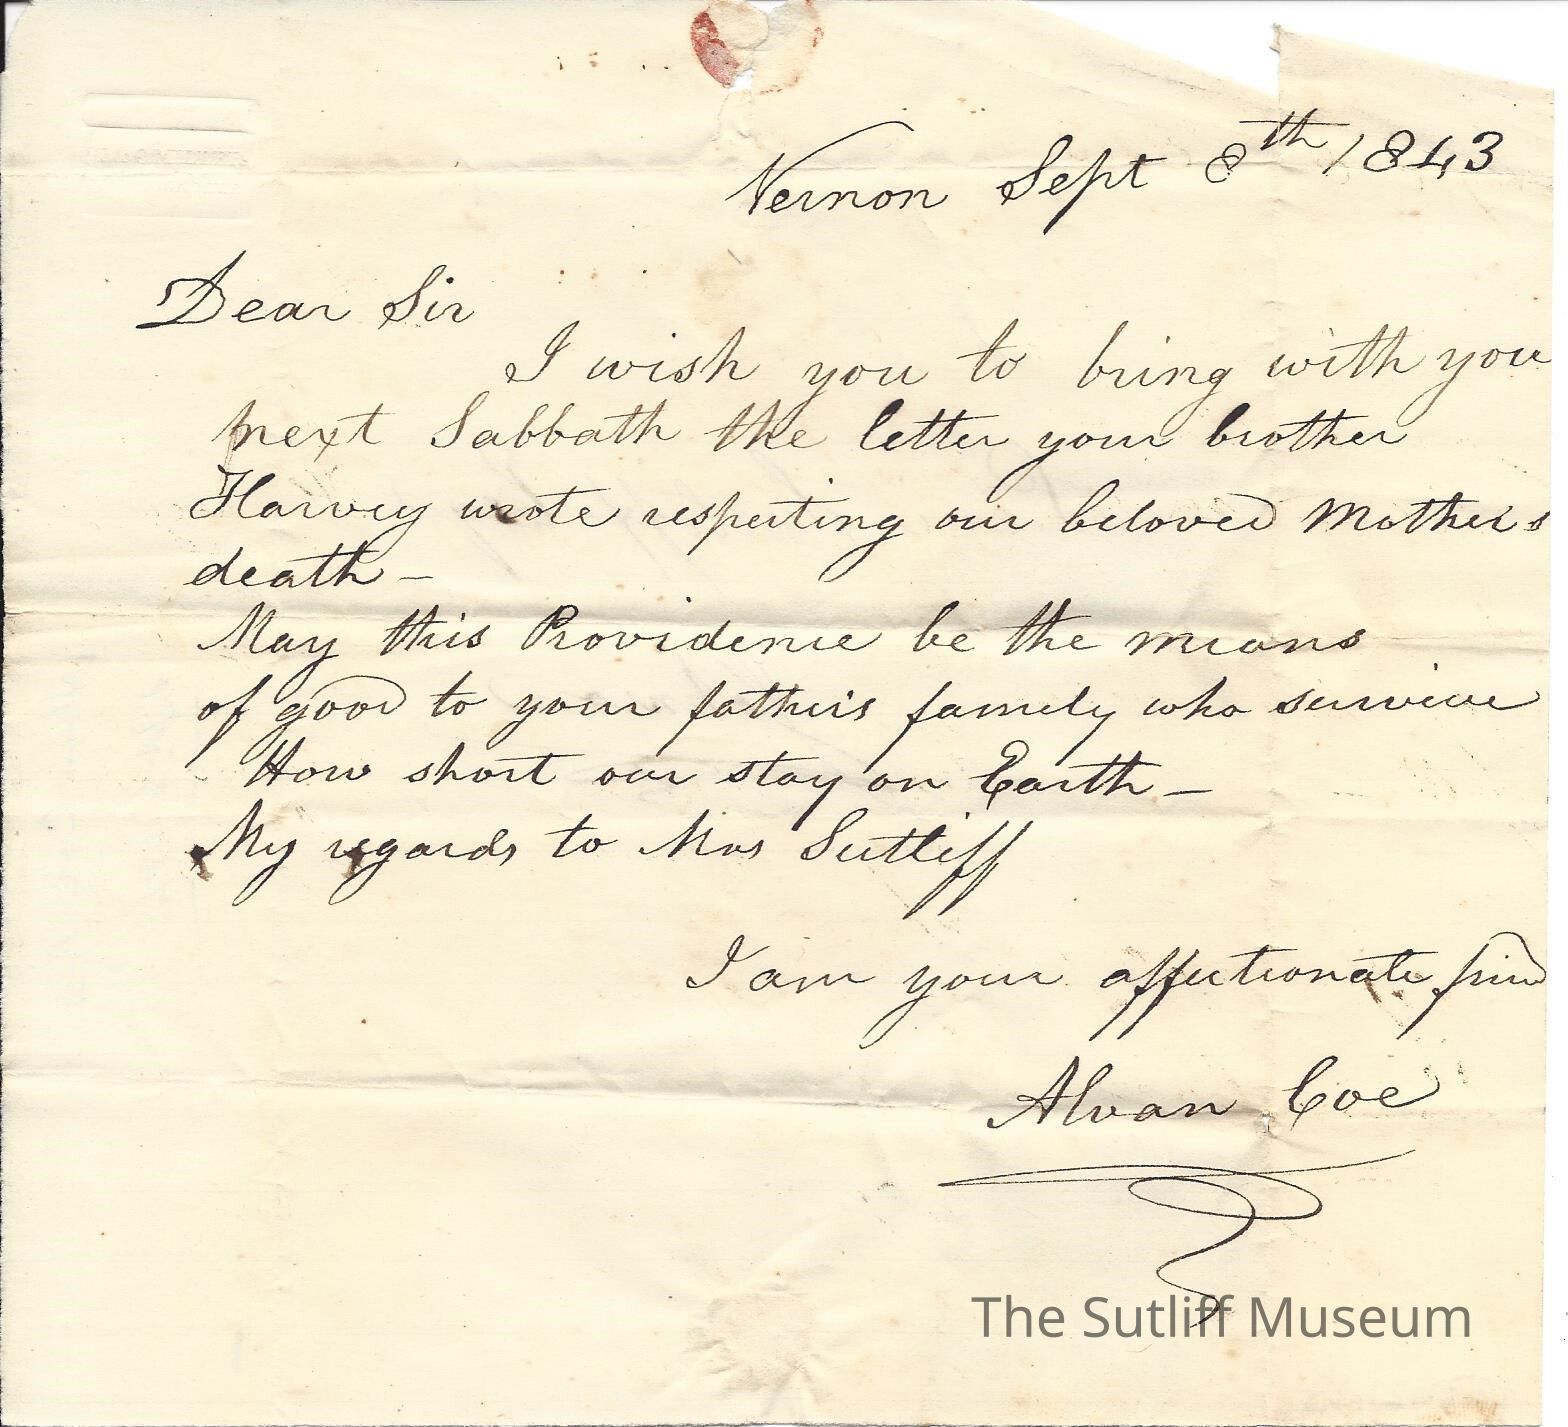 Vernon Sept 8th 1843
Dear Sir
I wish you to bring with you
next Sabbath the letter your brother
Harvey wrote respecting our beloved Mothers
death –
May this Providence be the means
of good to your father's family who survive
How short our stay on Earth –
My regards to Mrs Sutliff
I am your affectionate friend
Alvan Coe
The Sutliff Museum